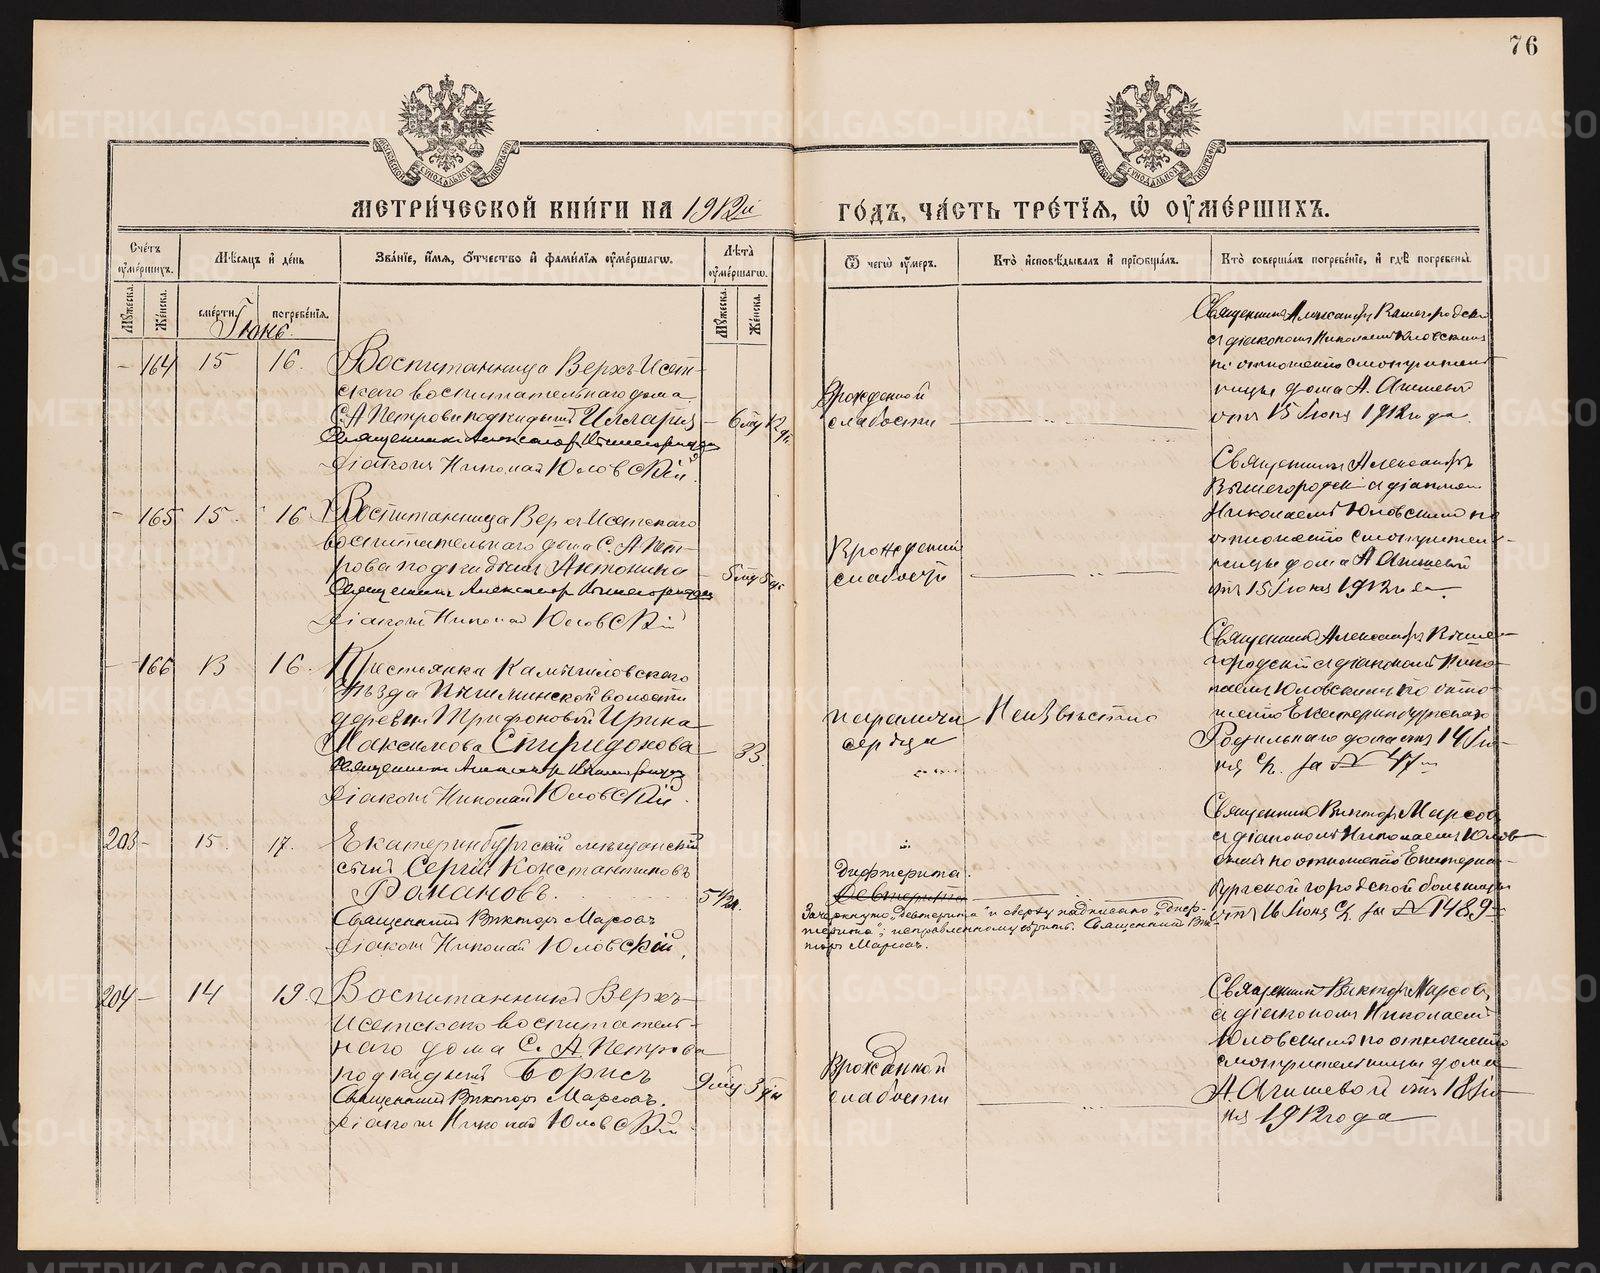 76
МЕТРИ́ЧЕСКОЙ КНИ́ГИ НА 1912й
ГО́ДЪ, ЧА́СТЬ ТРЕ́ТЇѦ, Ѡ ОУ҆МЕ́РШИХЪ.
Сче́тъ оу҆ме́ршихъ.
Мѣ́сяцъ и҆ де́нь
Зва́нїе, и҆́мя, ѻ҆́тчество и҆ фами́лїя оу҆ме́ршагѡ.
Лѣ́та оу҆ме́ршагѡ.
Ѿ чегѡ̀ оу҆́меръ.
Кто̀ и҆сповѣ́дывалъ и҆ прїѡбща́лъ.
Кто̀ соверша́лъ погребе́нїе, и҆ гдѣ̀ погребены̀.
Мꙋ́жеска.
Же́нска.
сме́рти.
погребе́нїя.
Мꙋ́жеска.
Же́нска.
Іюнь.
- 164 15 16.
Воспитанница Верхъ-Исет-
скаго воспитательнаго дома
С. А Петрова подкидышъ Илларія
Священникъ Александръ Вышегородскій
Діаконъ Николай Юловскій.
6 мѣ 12 дн.
Врожденной
слабости
Священникъ Александръ Вышегородскій
съ діакономъ Николаемъ Юловскимъ
по отношенію смотритель-
ницы дома А. Агишевой
отъ 15 Іюня 1912 года
- 165 15. 16
Воспитанница Верхъ-Исетскаго
воспитательнаго дома С. А. Пет-
рова подкидышъ Антонина
Священникъ Александръ Вышегородскій
Діаконъ Николай Юловскій
5 мѣ 5 дн
Врожденной
слабости
Священникъ Александръ
Вышегородскій съ діакономъ
Николаемъ Юловскимъ по
отношенію смотритель-
ницы дома А Агишевой
отъ 15 Іюня 1912 года.
- 166 13 16.
Крестьянка Камышловскаго
уѣзда Пышминской волости
деревни Трифоновой Ирина
Максимова Спиридонова
Священникъ Александръ Вышегородскій
Діаконъ Николай Юловскій.
33.
параличъ
сердца
Неизвѣстно
Священникъ Александръ Выше-
городскій съ діакономъ Нико-
лаемъ Юловскимъ по отно-
шенію Екатеринбургскаго
Родильнаго дома отъ 14 Ію-
ня с/г. за № 47
203 - 15. 17.
Екатеринбургскій мѣщанскій
сынъ Сергій Константиновъ
Романовъ.
Священникъ Викторъ Марсовъ
Діаконъ Николай Юловскій.
5 1/2 л.
Дифтерита.
Девтерита
Зачеркнуто „Девтерита" и сверху надписано „Диф-
терита"; исправленному вѣрить. Священникъ Вик-
торъ Марсовъ.
Священникъ Викторъ Марсовъ
съ діакономъ Николаемъ Юлов-
скимъ по отношенію Екатерин-
бургской городской больницы
отъ 16 Іюня с/г. за № 1489
204 - 14 19.
Воспитанникъ Верхъ-
Исетскаго воспитатель-
наго дома С. А. Петрова
подкидышъ Борисъ
Священникъ Викторъ Марсовъ.
Діаконъ Николай Юловскій.
9 мѣ 3 дн
Врожденной
слабости
Священникъ Викторъ Марсовъ
съ діакономъ Николаемъ
Юловскимъ по отношенію
смотрительницы дома
А. Агишевой отъ 18 Ію-
ня 1912 года